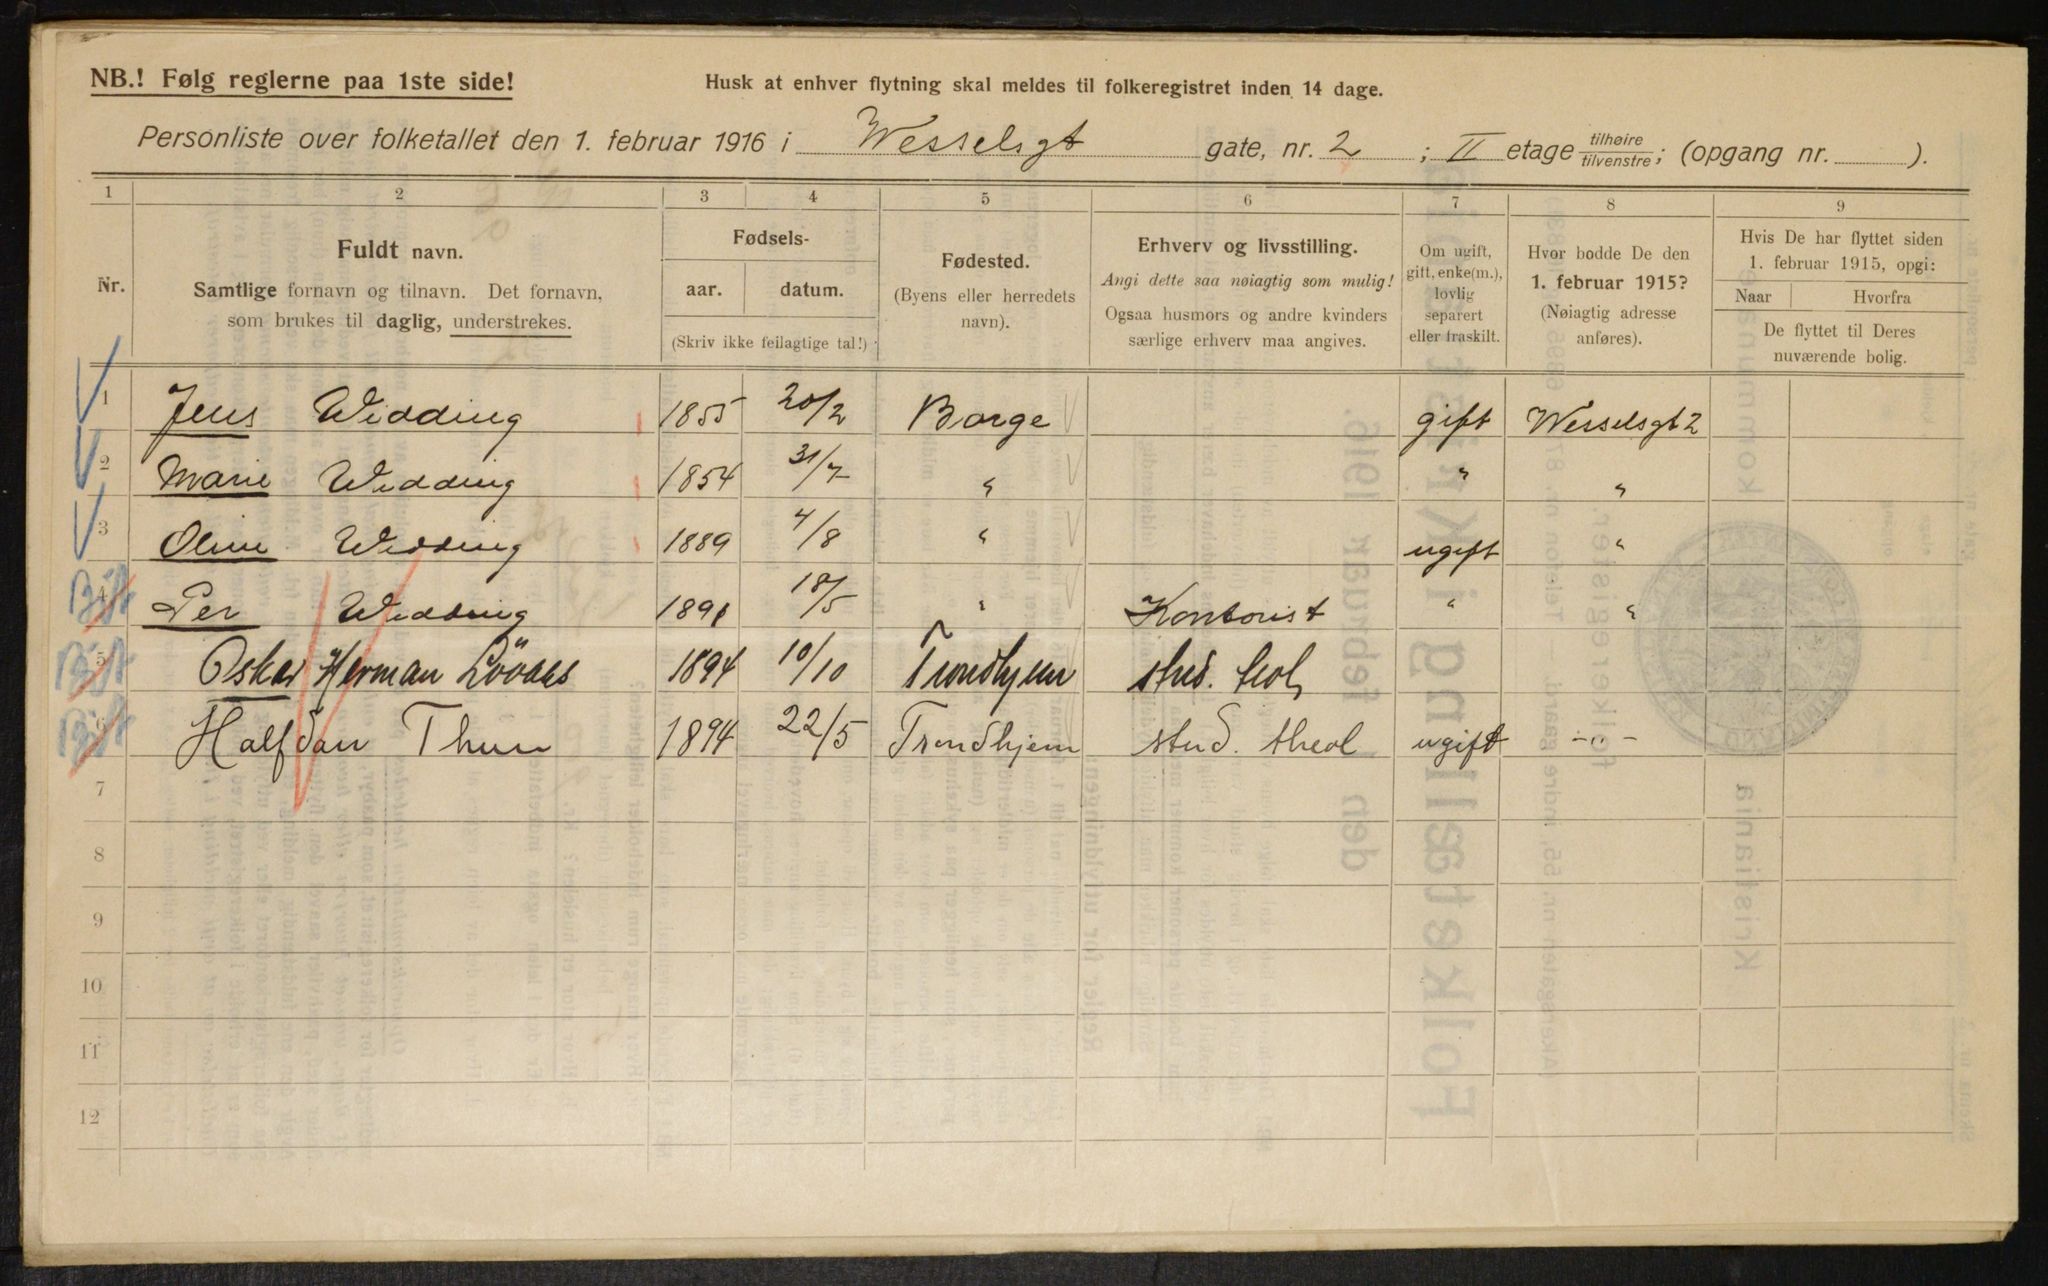 NB.! Følg reglerne paa 1ste side!
Husk at enhver flytning skal meldes til folkeregistret inden 14 dage.
Personliste over folketallet den 1. februar 1916 i Wesselsgt gate, nr. 2 ; II etage tilhøire/tilvenstre; (opgang nr. ).
1 2 3 4 5 6 7 8 9
Nr.
Fuldt navn.
Samtlige fornavn og tilnavn. Det fornavn,
som brukes til daglig, understrekes.
Fødsels-
aar. datum.
(Skriv ikke feilagtige tal!)
Fødested.
(Byens eller herredets
navn).
Erhverv og livsstilling.
Angi dette saa nøiagtig som mulig!
Ogsaa husmors og andre kvinders
særlige erhverv maa angives.
Om ugift,
gift, enke(m.),
lovlig
separert
eller fraskilt.
Hvor bodde De den
1. februar 1915?
(Nøiagtig adresse
anføres).
Hvis De har flyttet siden
1. februar 1915, opgi:
Naar Hvorfra
De flyttet til Deres
nuværende bolig.
1 Jens Widding 1855 20/2 Borge gift Wesselsgt 2
2 Marie Widding 1854 31/7 " " "
3 Oline Widding 1889 4/8 " ugift "
4 Per Widding 1891 18/5 " Kontorist " "
5 Oskar Herman 1894 10/10 Trondhjem stud. teol,
6 Halfdan Thun 1894 22/5 Trondhjem stud. theol ugift -"-
7
8
9
10
11
12